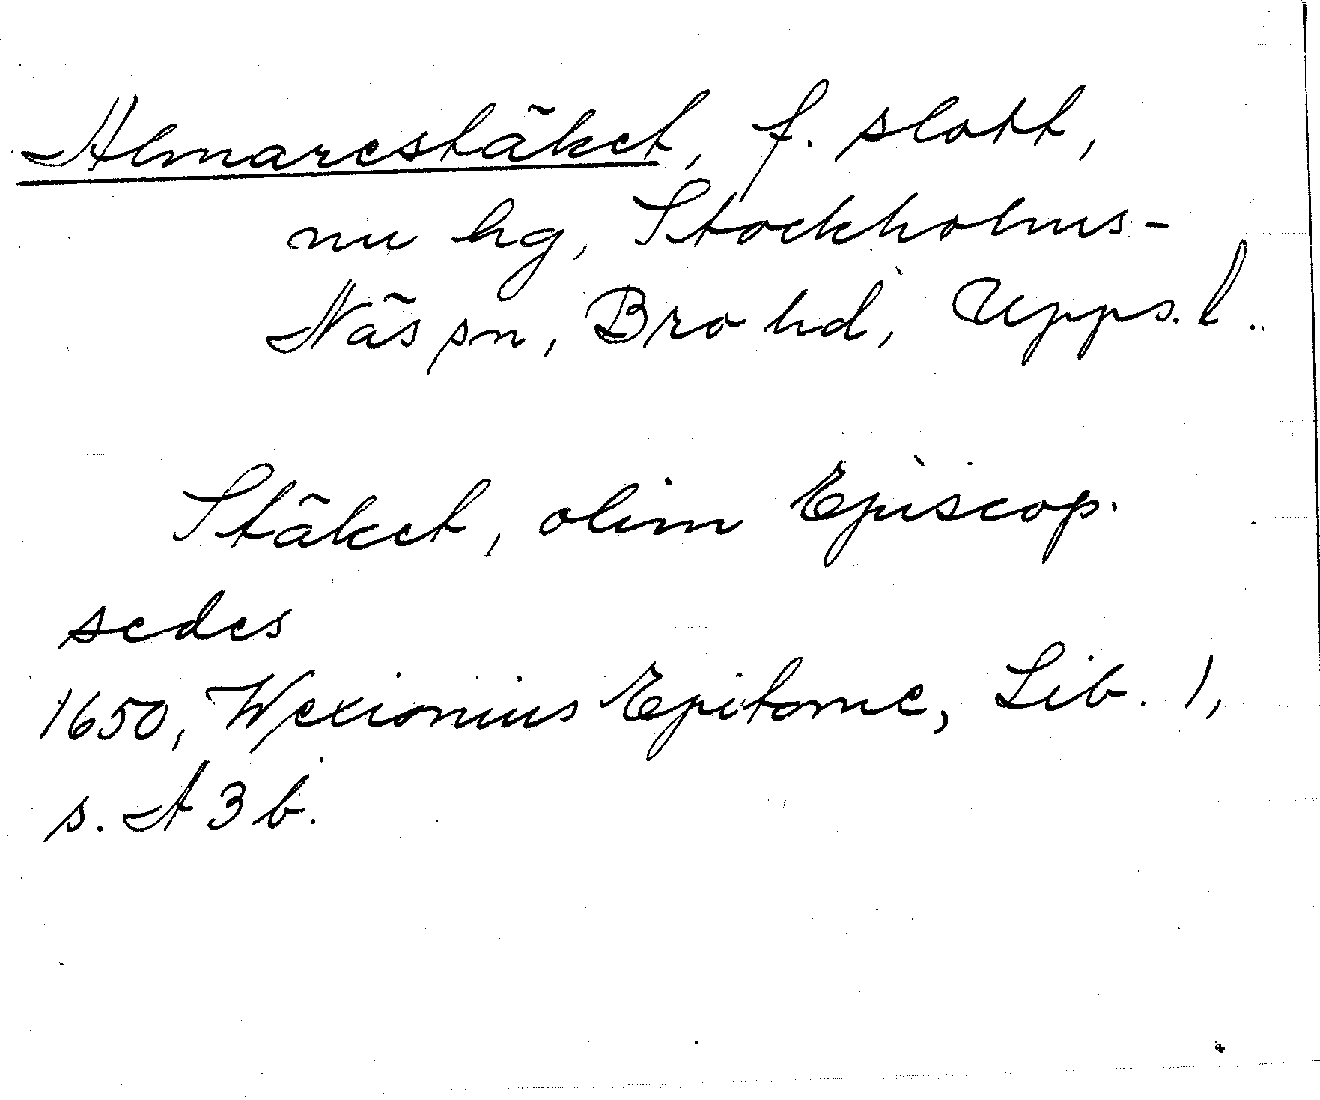 Almarestäket, f. slott,
nu hg, Stockholms-
Näs sn, Bro hd, Upps. l.
Stäket, olim Episcop.
sedes
1650, Wexionius Epitome, Lib. 1,
s. A 3 b.